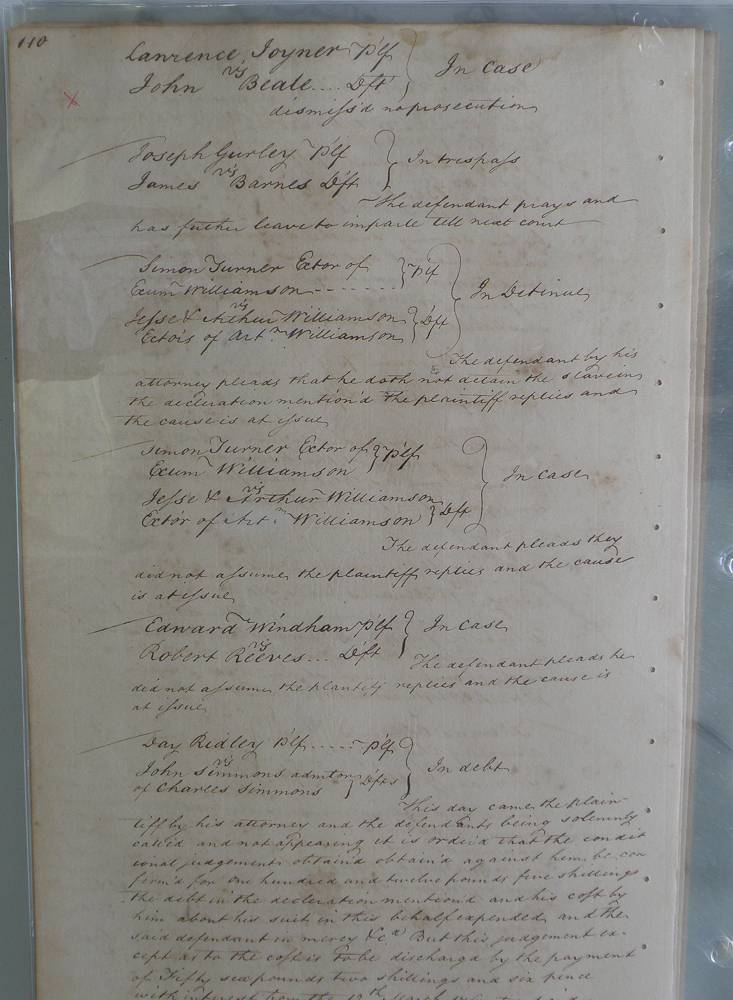 110
Lawrence Joyner Plf
vs
John Beale.... Dft
In Case
dismiss'd no prosecution
Joseph Gurley Plf
vs
James Barnes Dft
In trespass
The defendant prays and
has futher leave to imparle till next court
Simon Turner Extor of
Exum Williamson - - - - - - -
Plf
vs
Jesse & Arthur Williamson
Extors of Art.m Williamson
Dft
In Detinue
The defendant by his
attorney pleads that he doth not detain the slave in
the declaration mention'd the plaintiff replies and
the cause is at issue
Simon Turner Extor of
Exum Williamson
Plf
vs
Jesse & Arthur Williamson
Extor of Art.m Williamson
Dft
In case
The defendant pleads they
did not assume the plaintiff replies and the cause
is at issue
Edward Windham Plf
vs
Robert Reeves... Dft
In Case
The defendant pleads he
did not assume the plantiff replies and the cause is
at issue
Day Ridley Plf ...... Plf
vs
John Simmons admtor
of Charles Simmons
Dfts
In debt
This day came the plain-
tiff by his attorney and the defendants being solemnly
call'd and not appearing it is order'd that the condit
ional judgement obtain'd obtain'd against him be con
firm'd for one hundred and twelve pounds five shillings
the debt in the declaration mention'd and his cost by
him about his suit in this behalf expended, and the
said defendant in mercy &c.a But this judgement ex-
cept as to the cost is to be discharg'd by the payment
of Fifty sex pounds two shillings and six pence
with interest from the